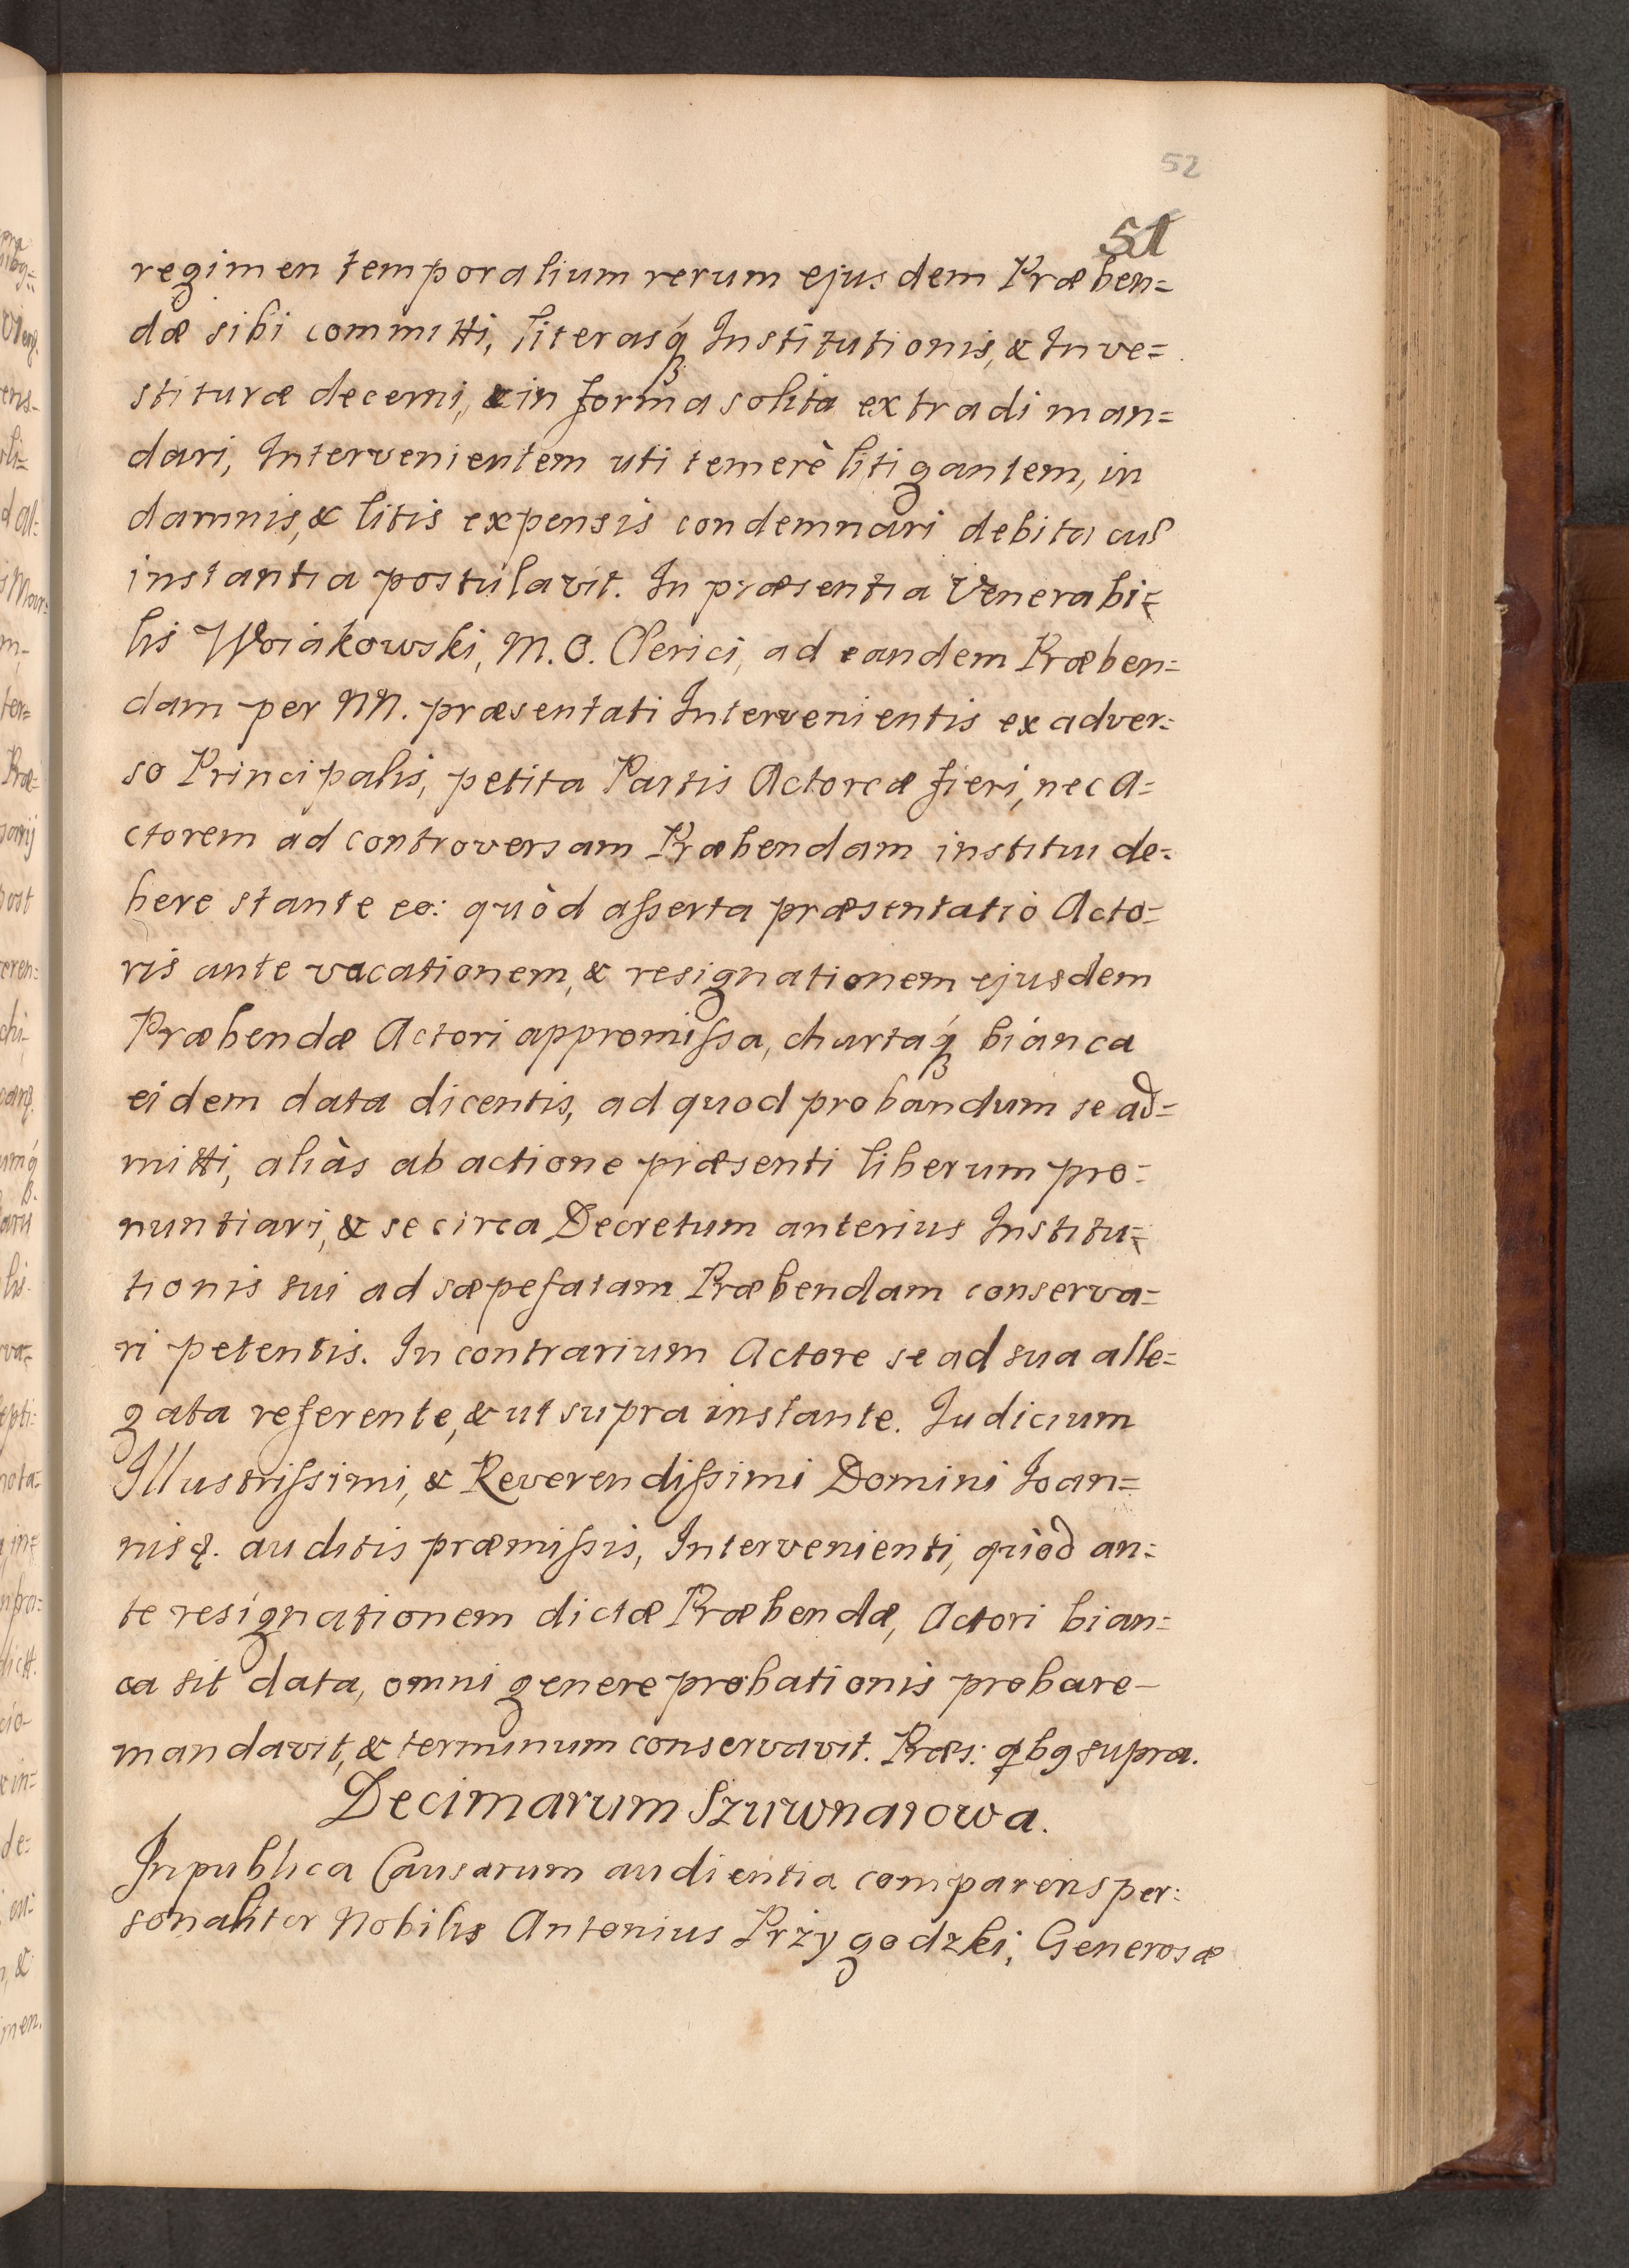 52
51
regimen temporalium rerum ejusdem Præben=
dæ sibi committi, literasq́ Institutionis, & Inve=
stituræ decerni, & in forma solita extradi man=
dari, Intervenientem uti temerè litigantem, in
damnis, & litis expensis condemnari debita cuſ
instantia postulavit. In præsentia Venerabi=
lis Woiakowski, M. O. Clerici, ad eandem Præben=
dam per NN. præsentati Intervenientis ex adver=
so Principalis, petita Partis Actoreæ fieri, nec A=
ctorem ad controversam Præbendam institui de=
bere stante eo: quòd aſserta præsentatio Acto=
ris ante vacationem, & resignationem ejusdem
Præbendæ Actori appromiſsa, chartaq́ bianca
eidem data dicentis, ad quod probandum se ad=
mitti, aliàs ab actione præsenti liberum pro=
nuntiari, & se circa Decretum anterius Institu=
tionis sui ad sæpefatam Præbendam conserva=
ri petentis. In contrarium Actore se ad sua alle=
gata referente, & ut supra instante. Iudicium
Illustriſsimi, & Reverendiſsimi Domini Ioan=
nis &. auditis præmiſsis, Intervenienti, quòd an=
te resignationem dictæ Præbendæ, Actori bian=
ca sit data, omni genere probationis probare
mandavit, & terminum conservavit. Præs: qbg supra.
Decimarum Szuwnatowa.
In publica Causarum audientia comparens per=
sonaliter Nobilis Antonius Przygodzki, Generosæ